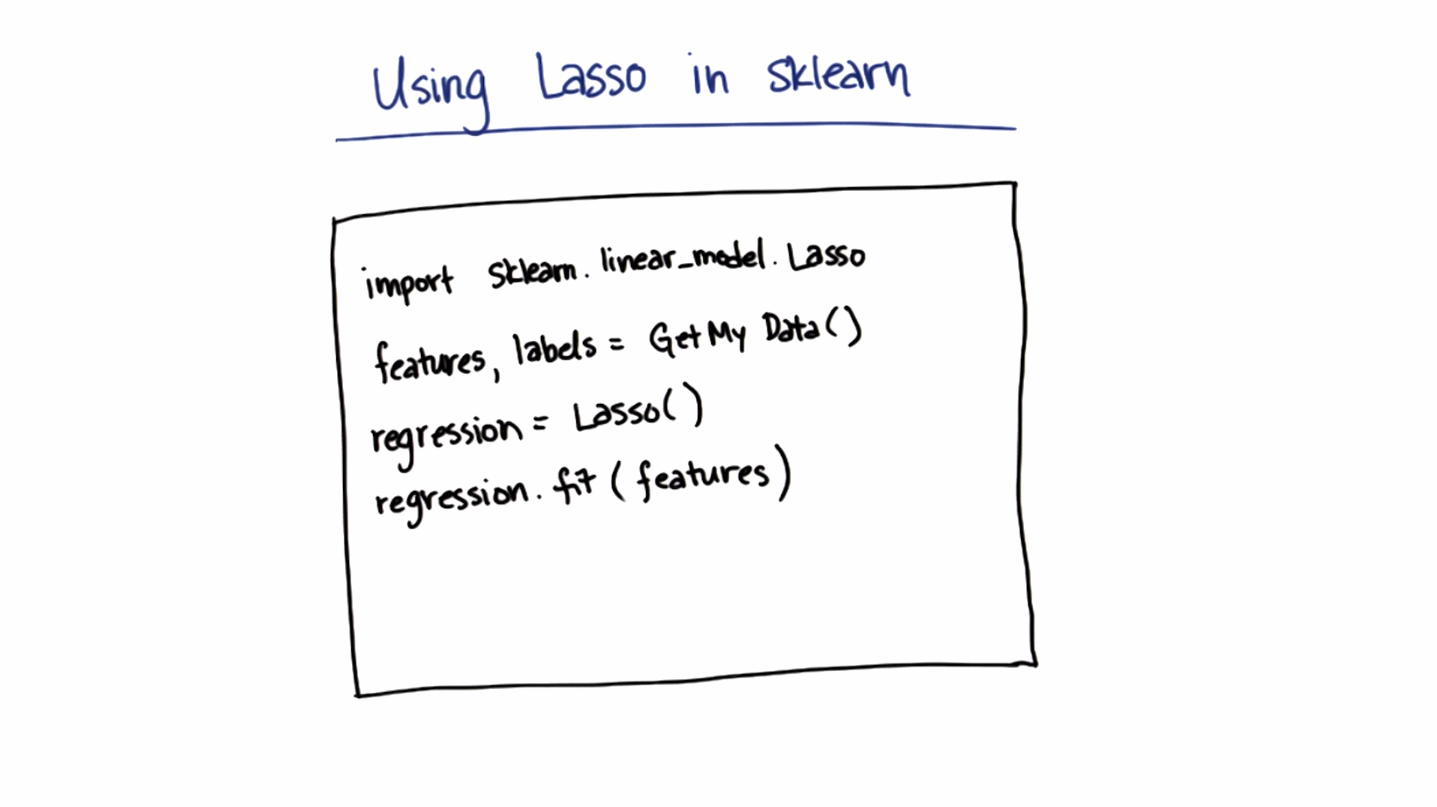 Using Lasso in sklearn
import sklearn.linear_model.Lasso
features, labels = GetMyData()
regression = Lasso()
regression.fit(features)